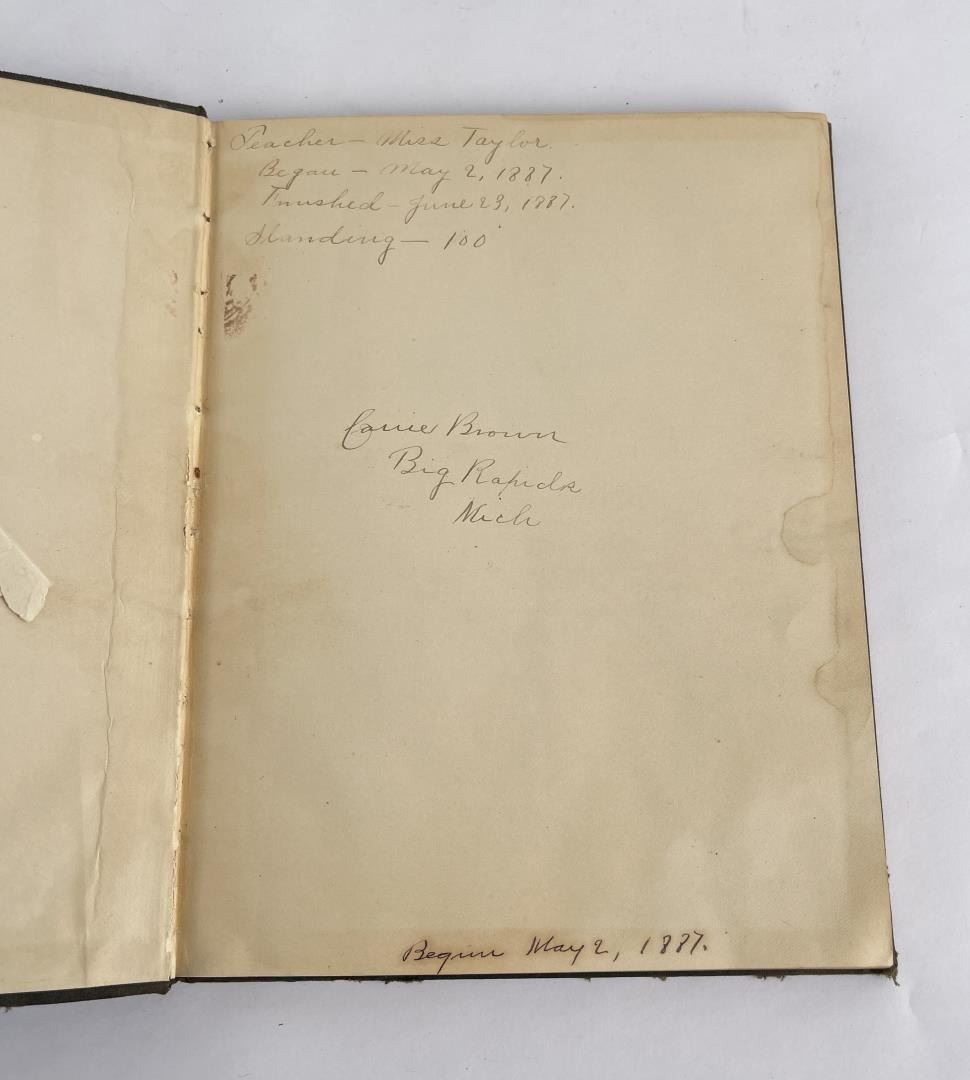 Teacher — Miss Taylor.
Began — May 2, 1887.
Finished — June 23, 1887.
Standing — 100
Carrie Brown
Big Rapids
Mich
Begun May 2, 1887.